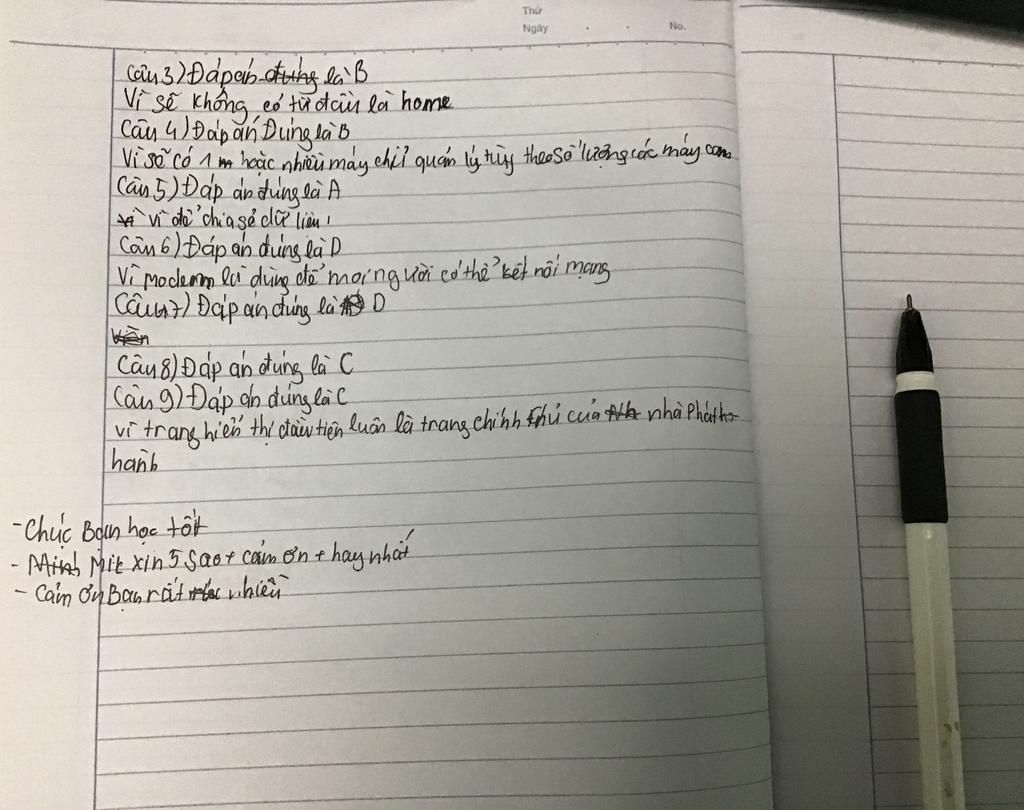 Thứ
Ngày . . No.
Câu 3) Đáp án đúng là B
Vì sẽ không có từ đầu là home
Câu 4) Đáp án Đúng là B
Vì sẽ có 1 hoặc nhiều máy chỉ quản lý tùy theo số lượng các máy con
Câu 5) Đáp án đúng là A
vì để chia sẻ dữ liêu
Câu 6) Đáp án đúng là D
Vì modem là dùng để mọi người có thể kết nối mạng
Câu 7) Đáp án đúng là D
Câu 8) Đáp án đúng là C
Câu 9) Đáp án đúng là C
vì trang hiển thị đầu tiên luôn là trang chính chủ của nhà Phát
hành
- Chúc Bạn học tốt
- Mik xin 5 sao + cảm ơn + hay nhất
- Cảm ơn Bạn rất nhiều